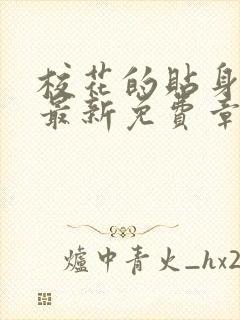 校花的贴身
最新免費章
爐中青火_hx2